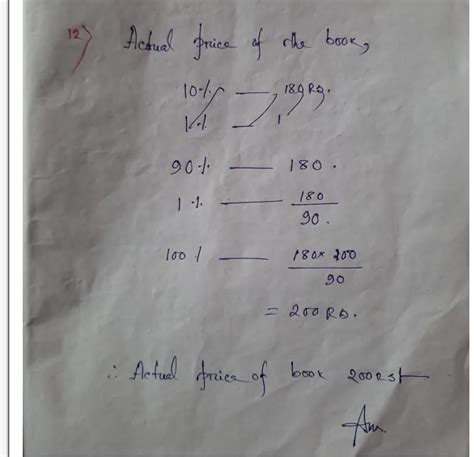 12) Actual price of the book,
10% — 180 Rs.
1% — 1
90% — 180.
1% — 180/90.
100% — 180 × 200/90
= 200 Rs.
∴ Actual price of book 200 Rs
Ans